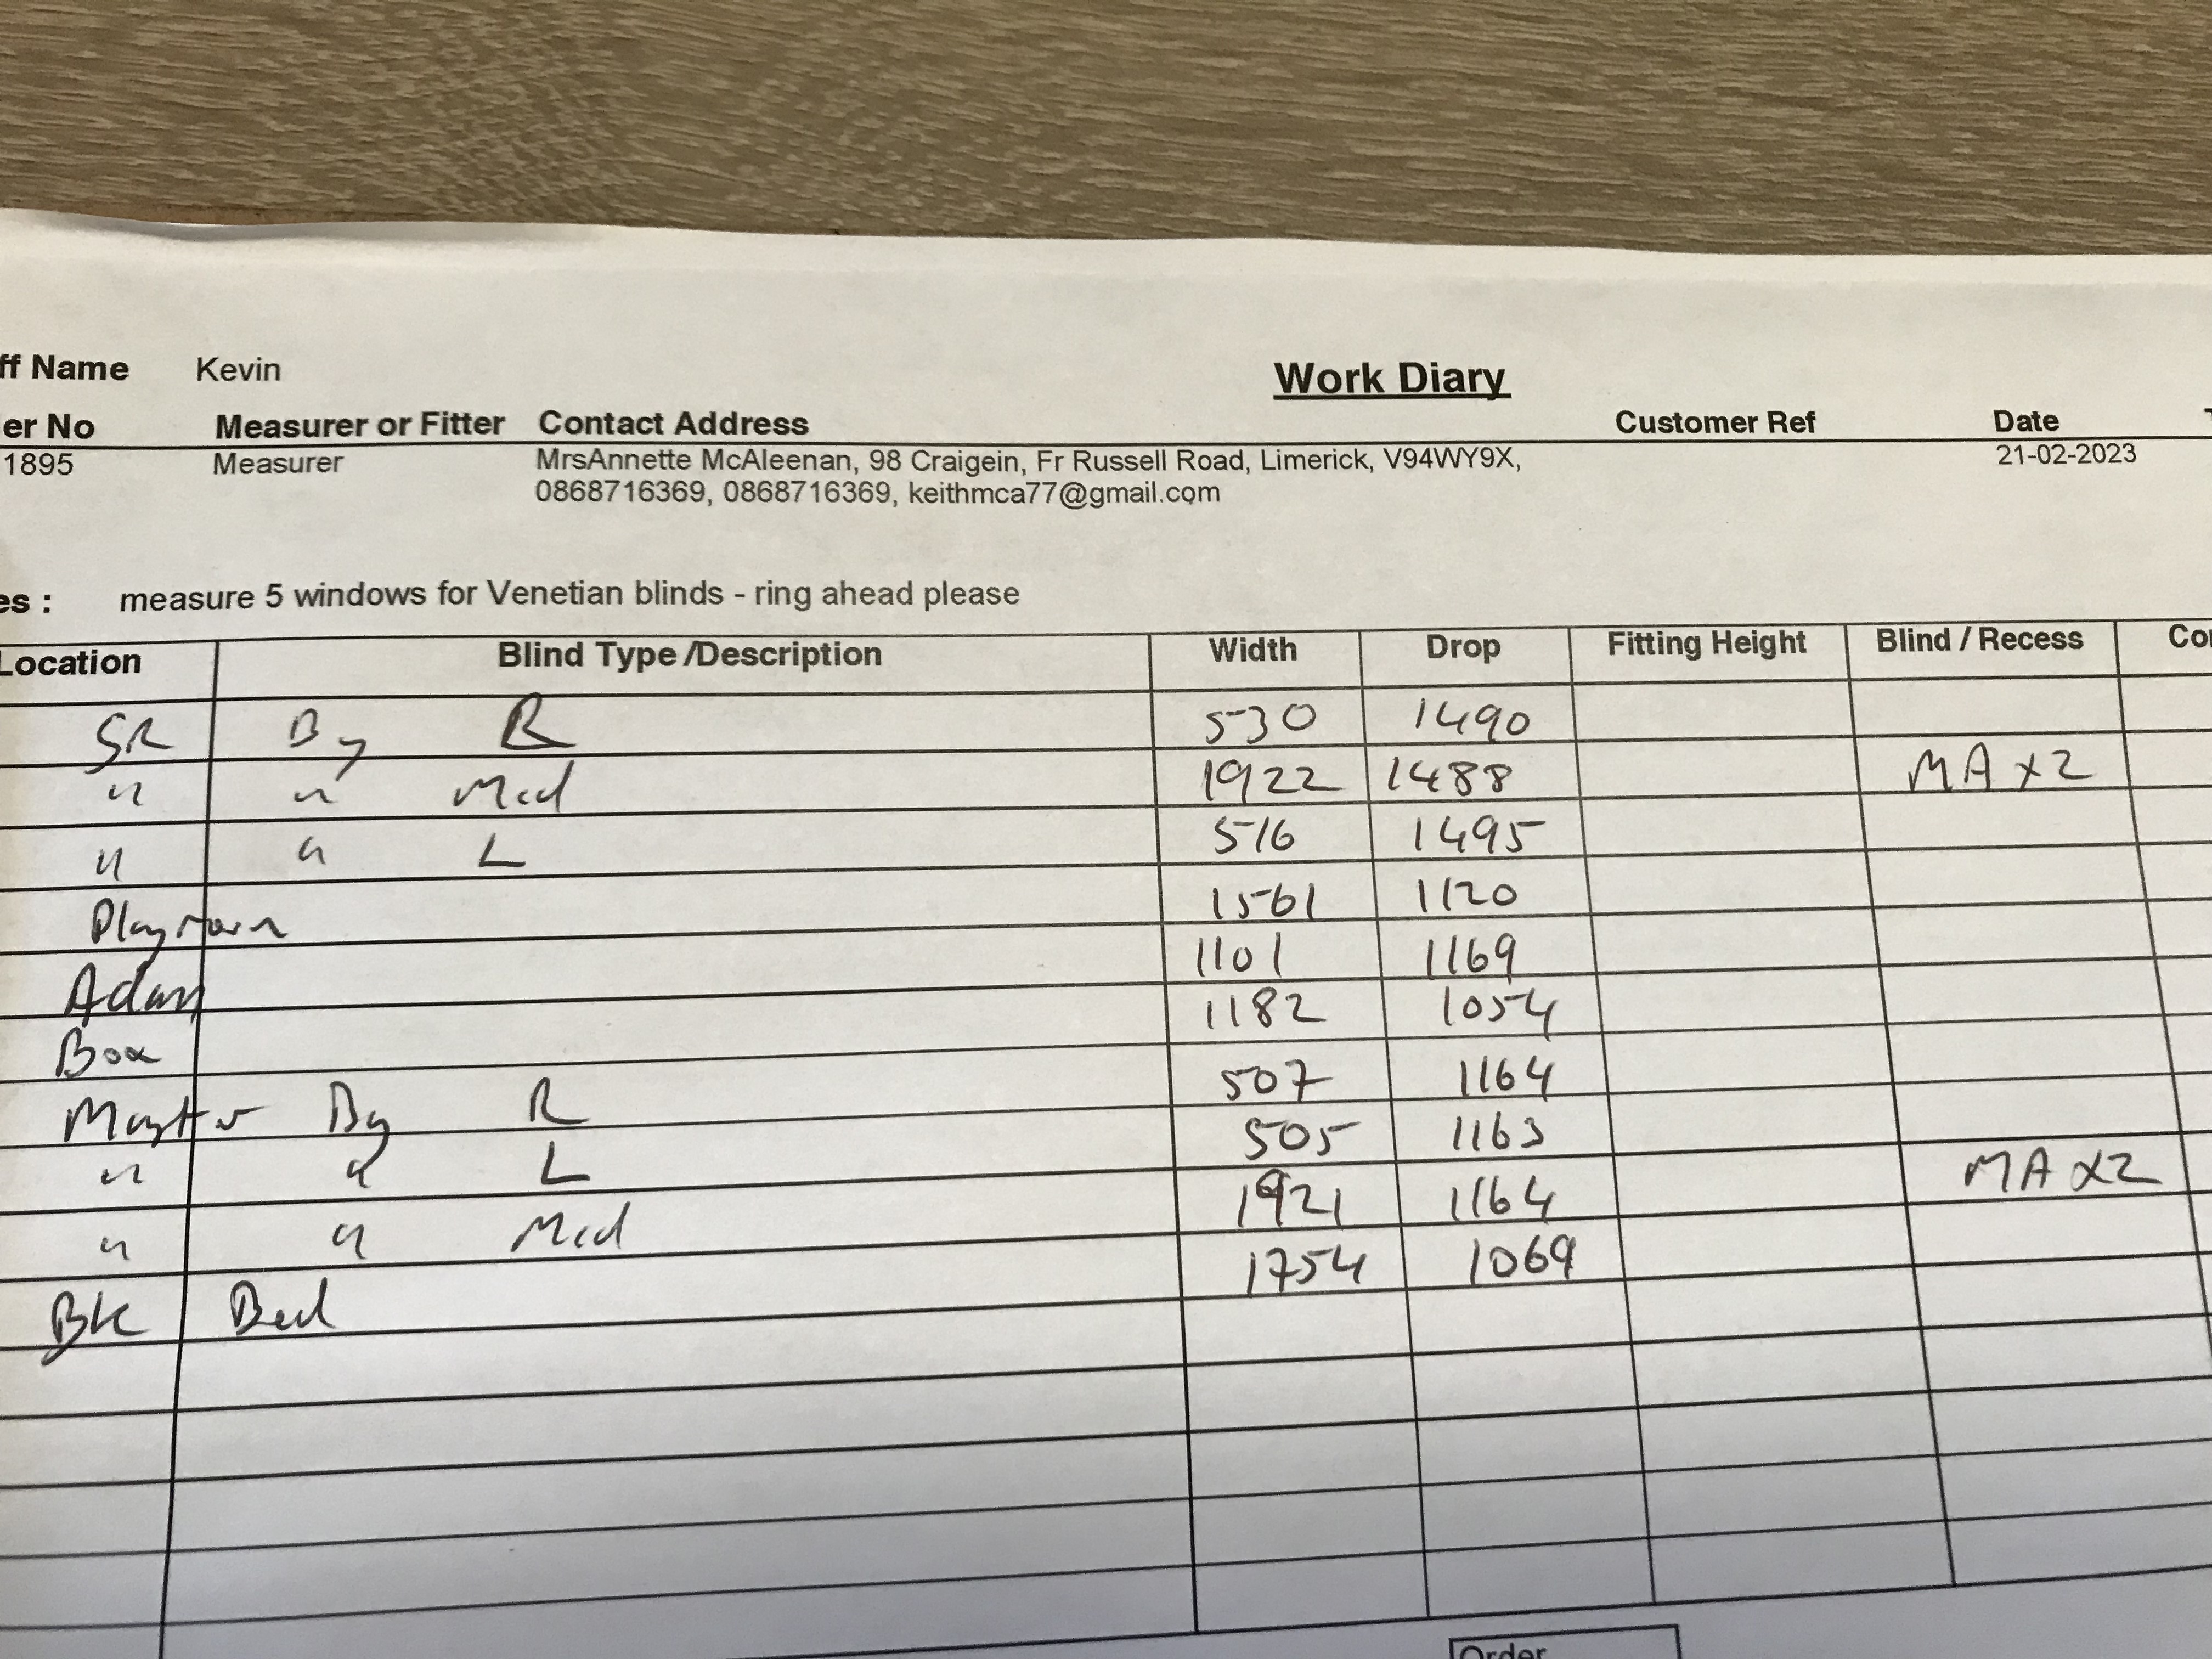 ff Name Kevin
Work Diary
er No Measurer or Fitter Contact Address Customer Ref Date
1895 Measurer MrsAnnette McAleenan, 98 Craigein, Fr Russell Road, Limerick, V94WY9X, 21-02-2023
0868716369, 0868716369, keithmca77@gmail.com
es : measure 5 windows for Venetian blinds - ring ahead please
Location Blind Type /Description Width Drop Fitting Height Blind / Recess Co
SR By R 530 1490
" " Mid 1922 1488 MA x2
" " L 516 1495
Playroom 1561 1120
Adam 1101 1169
Box 1182 1054
Master By R 507 1164
" " L 505 1163
" " Mid 1921 1164 MA x2
Bk Bed 1754 1069
Order